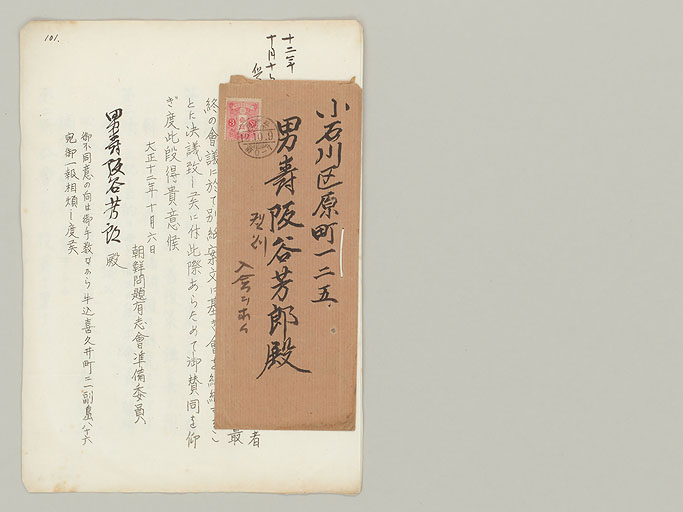 101.
十二年
十月十
小石川区原町一二五
男壽阪谷芳郎殿
入会
12.10.9
者
最
終の會議に於て別紙案文に基き會を組織するこ
とに決議致し候に付此際あらためて御賛同を仰
ぎ度此段得貴意候
大正十二年十月六日
朝鮮問題有志會準備委員
男壽阪谷芳郎殿
御不同意の向は御手数ながら牛込喜久井町二一副島八十六
宛御一報相煩し度候